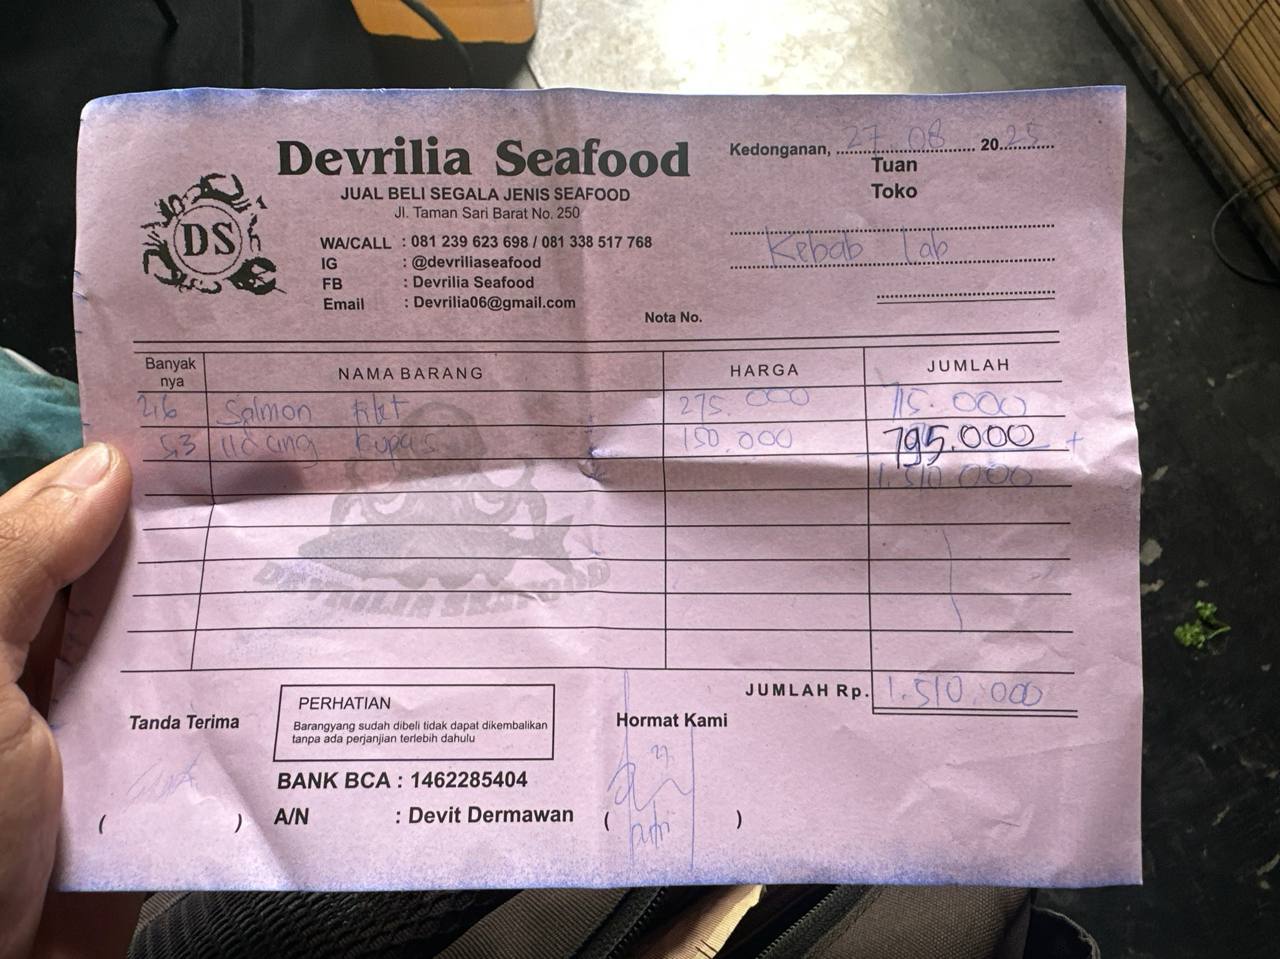 Devrilia Seafood
JUAL BELI SEGALA JENIS SEAFOOD
Jl. Taman Sari Barat No. 250
DS
WA/CALL : 081 239 623 698 / 081 338 517 768
IG : @devriliaseafood
FB : Devrilia Seafood
Email : Devrilia06@gmail.com
Kedonganan, 27 08 2025
Tuan
Toko
Kebab Lab
Nota No.
Banyak nya NAMA BARANG HARGA JUMLAH
2,6 Salmon filet 275.000 715.000
5,3 Udang kupas 150.000 795.000 +
1.510.000
DEVRILIA SEAFOOD
JUMLAH Rp. 1.510.000
Tanda Terima
PERHATIAN
Barangyang sudah dibeli tidak dapat dikembalikan
tanpa ada perjanjian terlebih dahulu
Hormat Kami
BANK BCA : 1462285404
A/N : Devit Dermawan
( )
( putri )